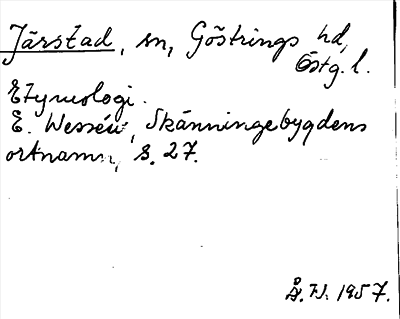 Järstad, sn, Göstrings hd,
Östg. l.
Etymologi.
E. Wessén, Skänningebygdens
ortnamn, s. 27.
Å. W. 1957.